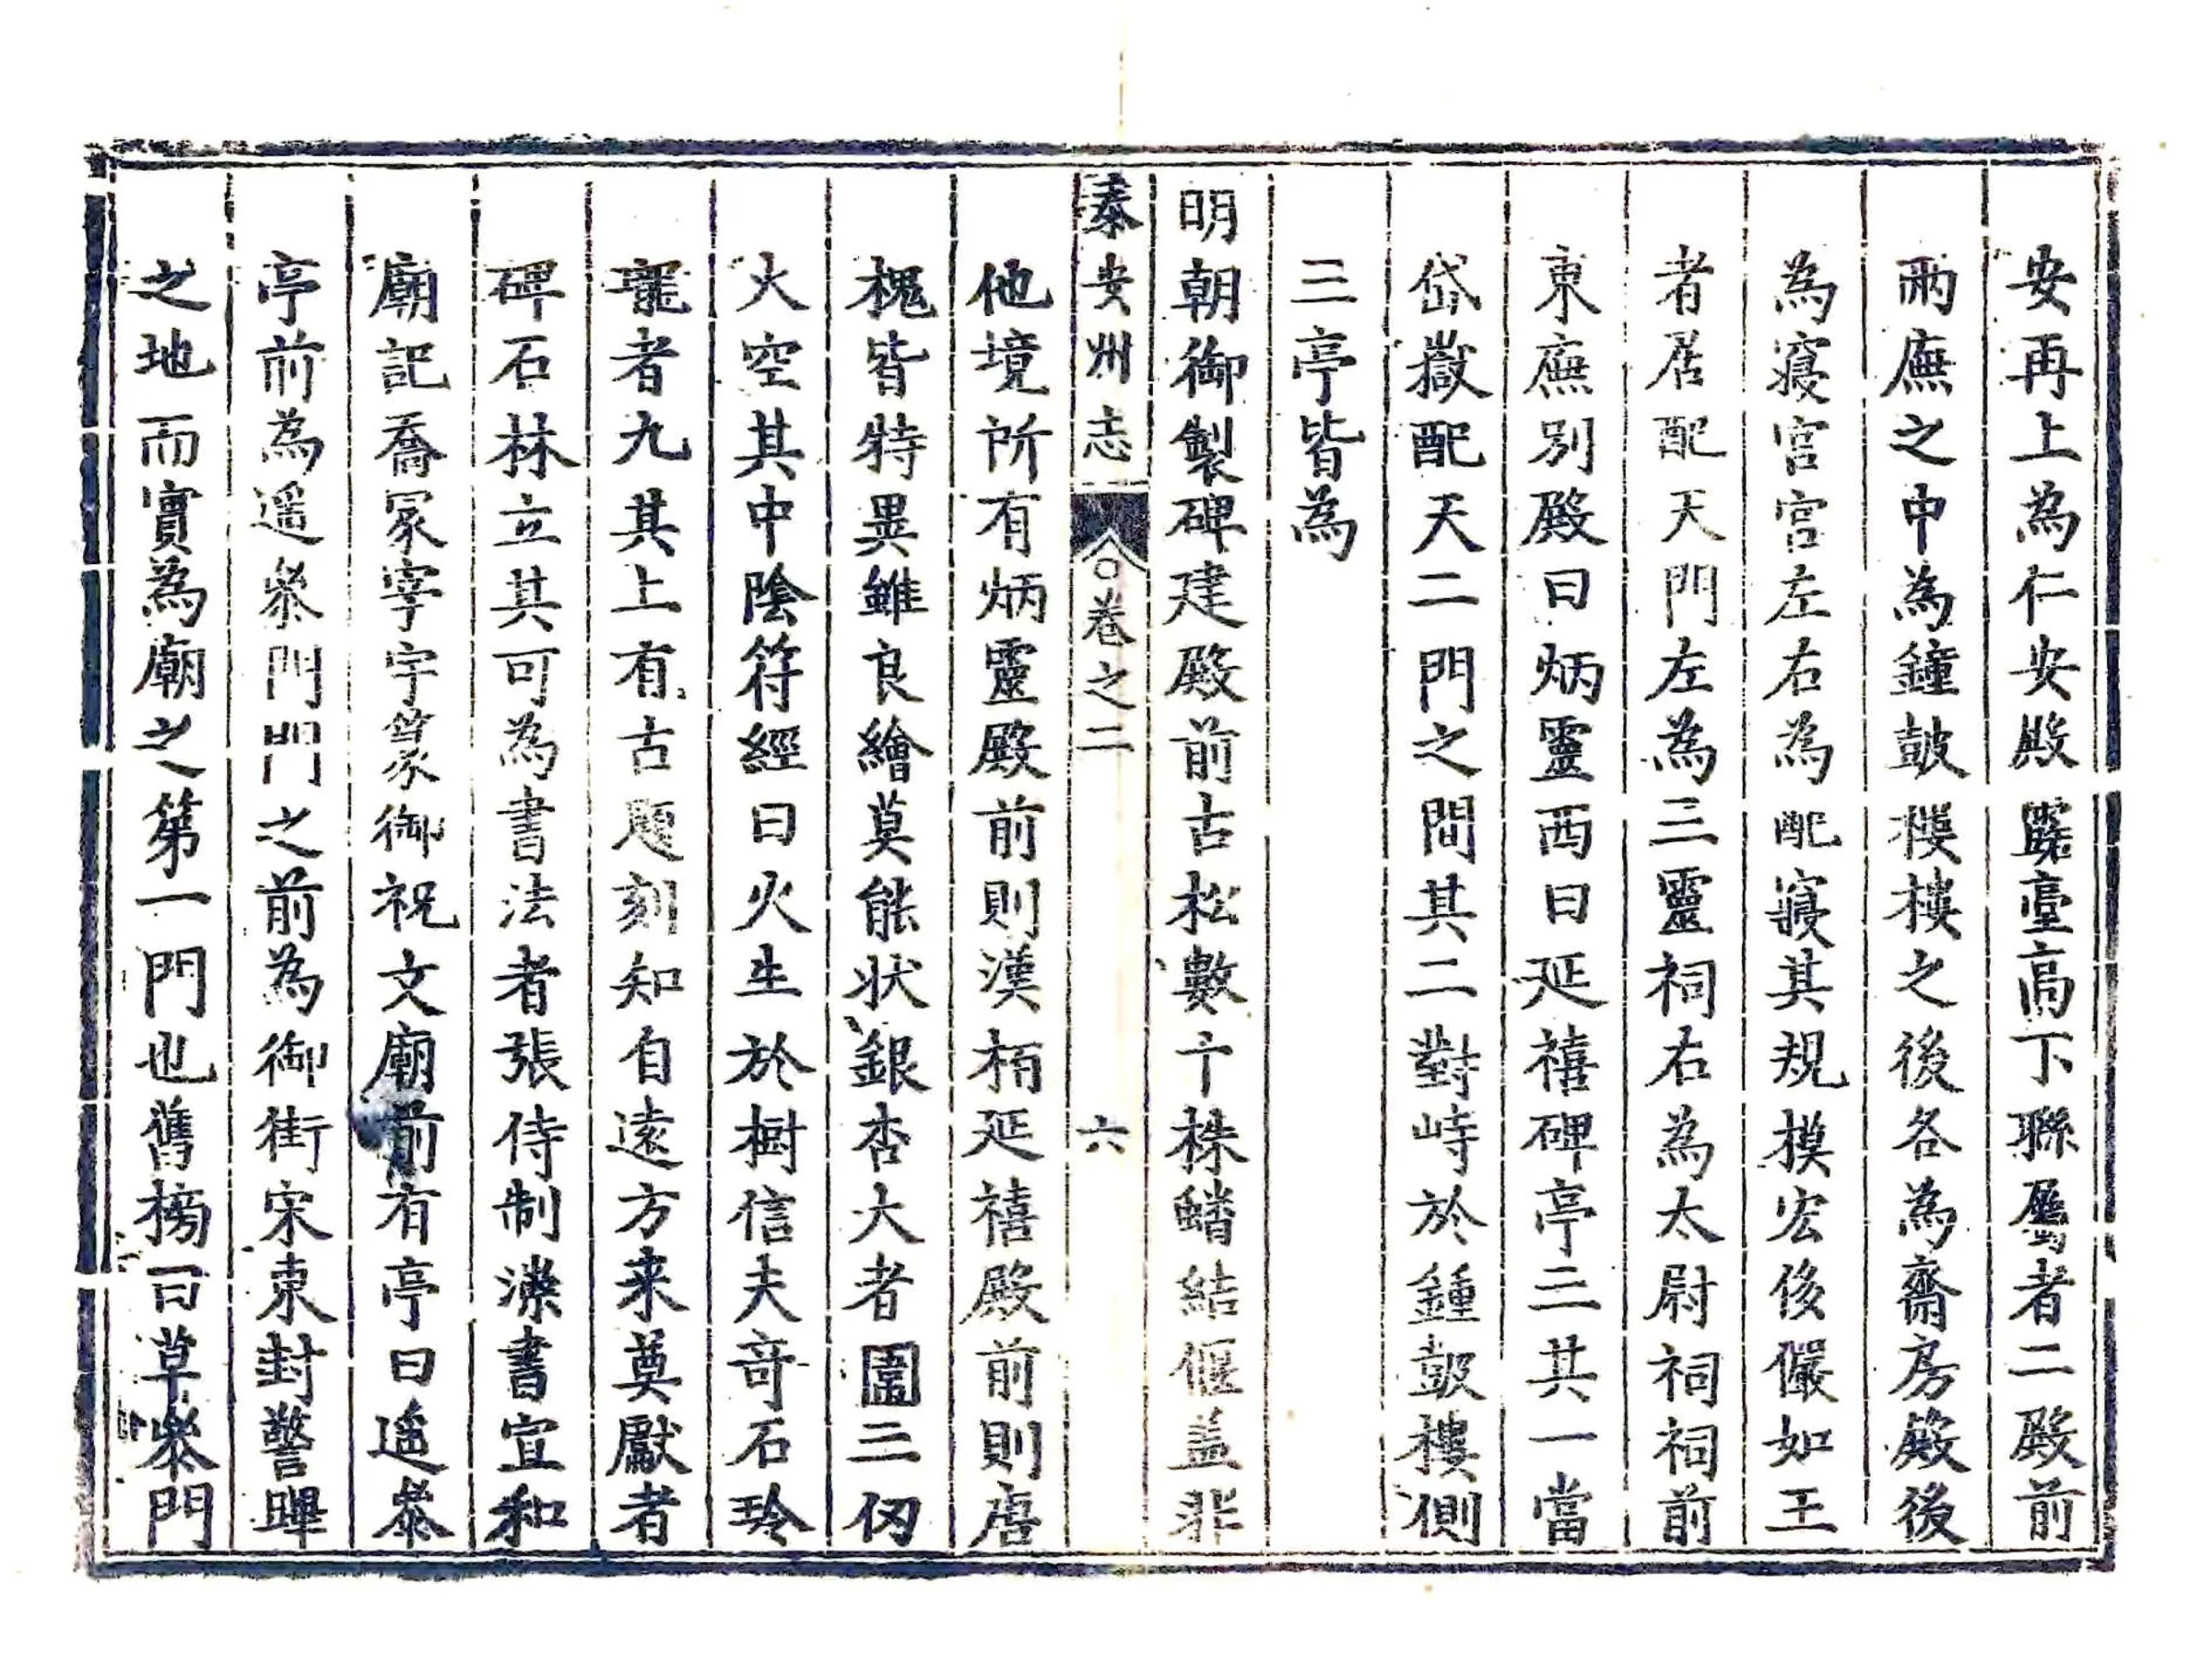 安再上為仁安殿露臺高下聯屬者二殿前
兩廡之中為鐘皷樓樓之後各為齋房殿後
為寢宮宮左右為配寢其規模宏侈儼如王
者居配天門左為三靈祠右為太尉祠祠前
東廡別殿曰炳靈西曰延禧碑亭三其一當
岱嶽配天二門之間其二對峙於鐘皷樓側
三亭皆為
明朝御製碑建殿前古松數十株蟠結偃蓋非
泰安州志 卷之二 六
他境所有炳靈殿前則漢柏延禧殿前則唐
槐皆特異雖良繪莫能狀銀杏大者圍三仞
火空其中陰符經曰火生於樹信夫竒石玲
瓏者九其上有古題刻知自遠方来奠獻者
碑石林立其可為書法者張侍制漴書宣和
廟記喬冢宰宇篆御祝文廟前有亭曰遥叅
亭前為遥叅門門之前為御街宋東封警蹕
之地而實為廟之第一門也舊榜曰草叅門